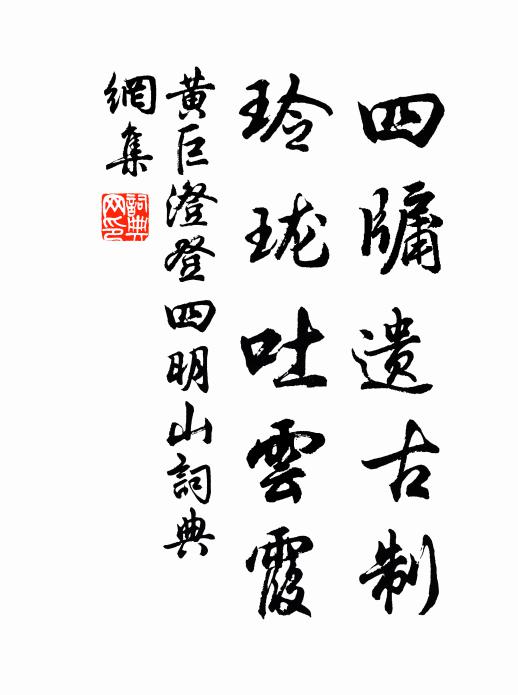 四牖遗古制
玲珑吐雲霞
黄巨澄登四明山詞典
網集
詞典
网印